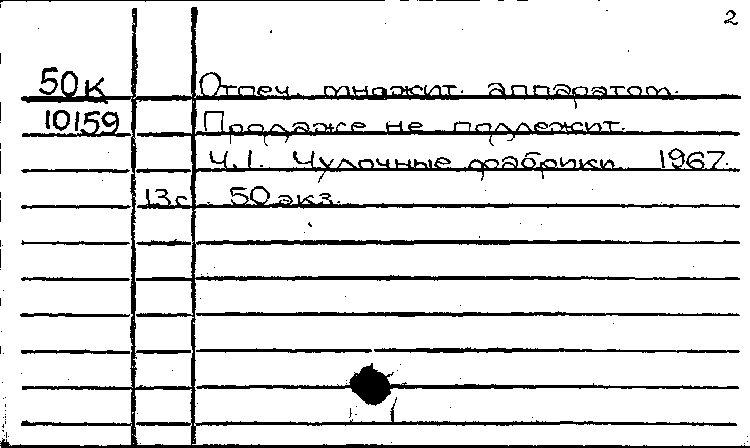 2
50к Отпеч. множит. аппаратом.
10159 Продаже не подлежит.
Ч.1. Чулочные фабрики. 1967.
13с. 50 экз.